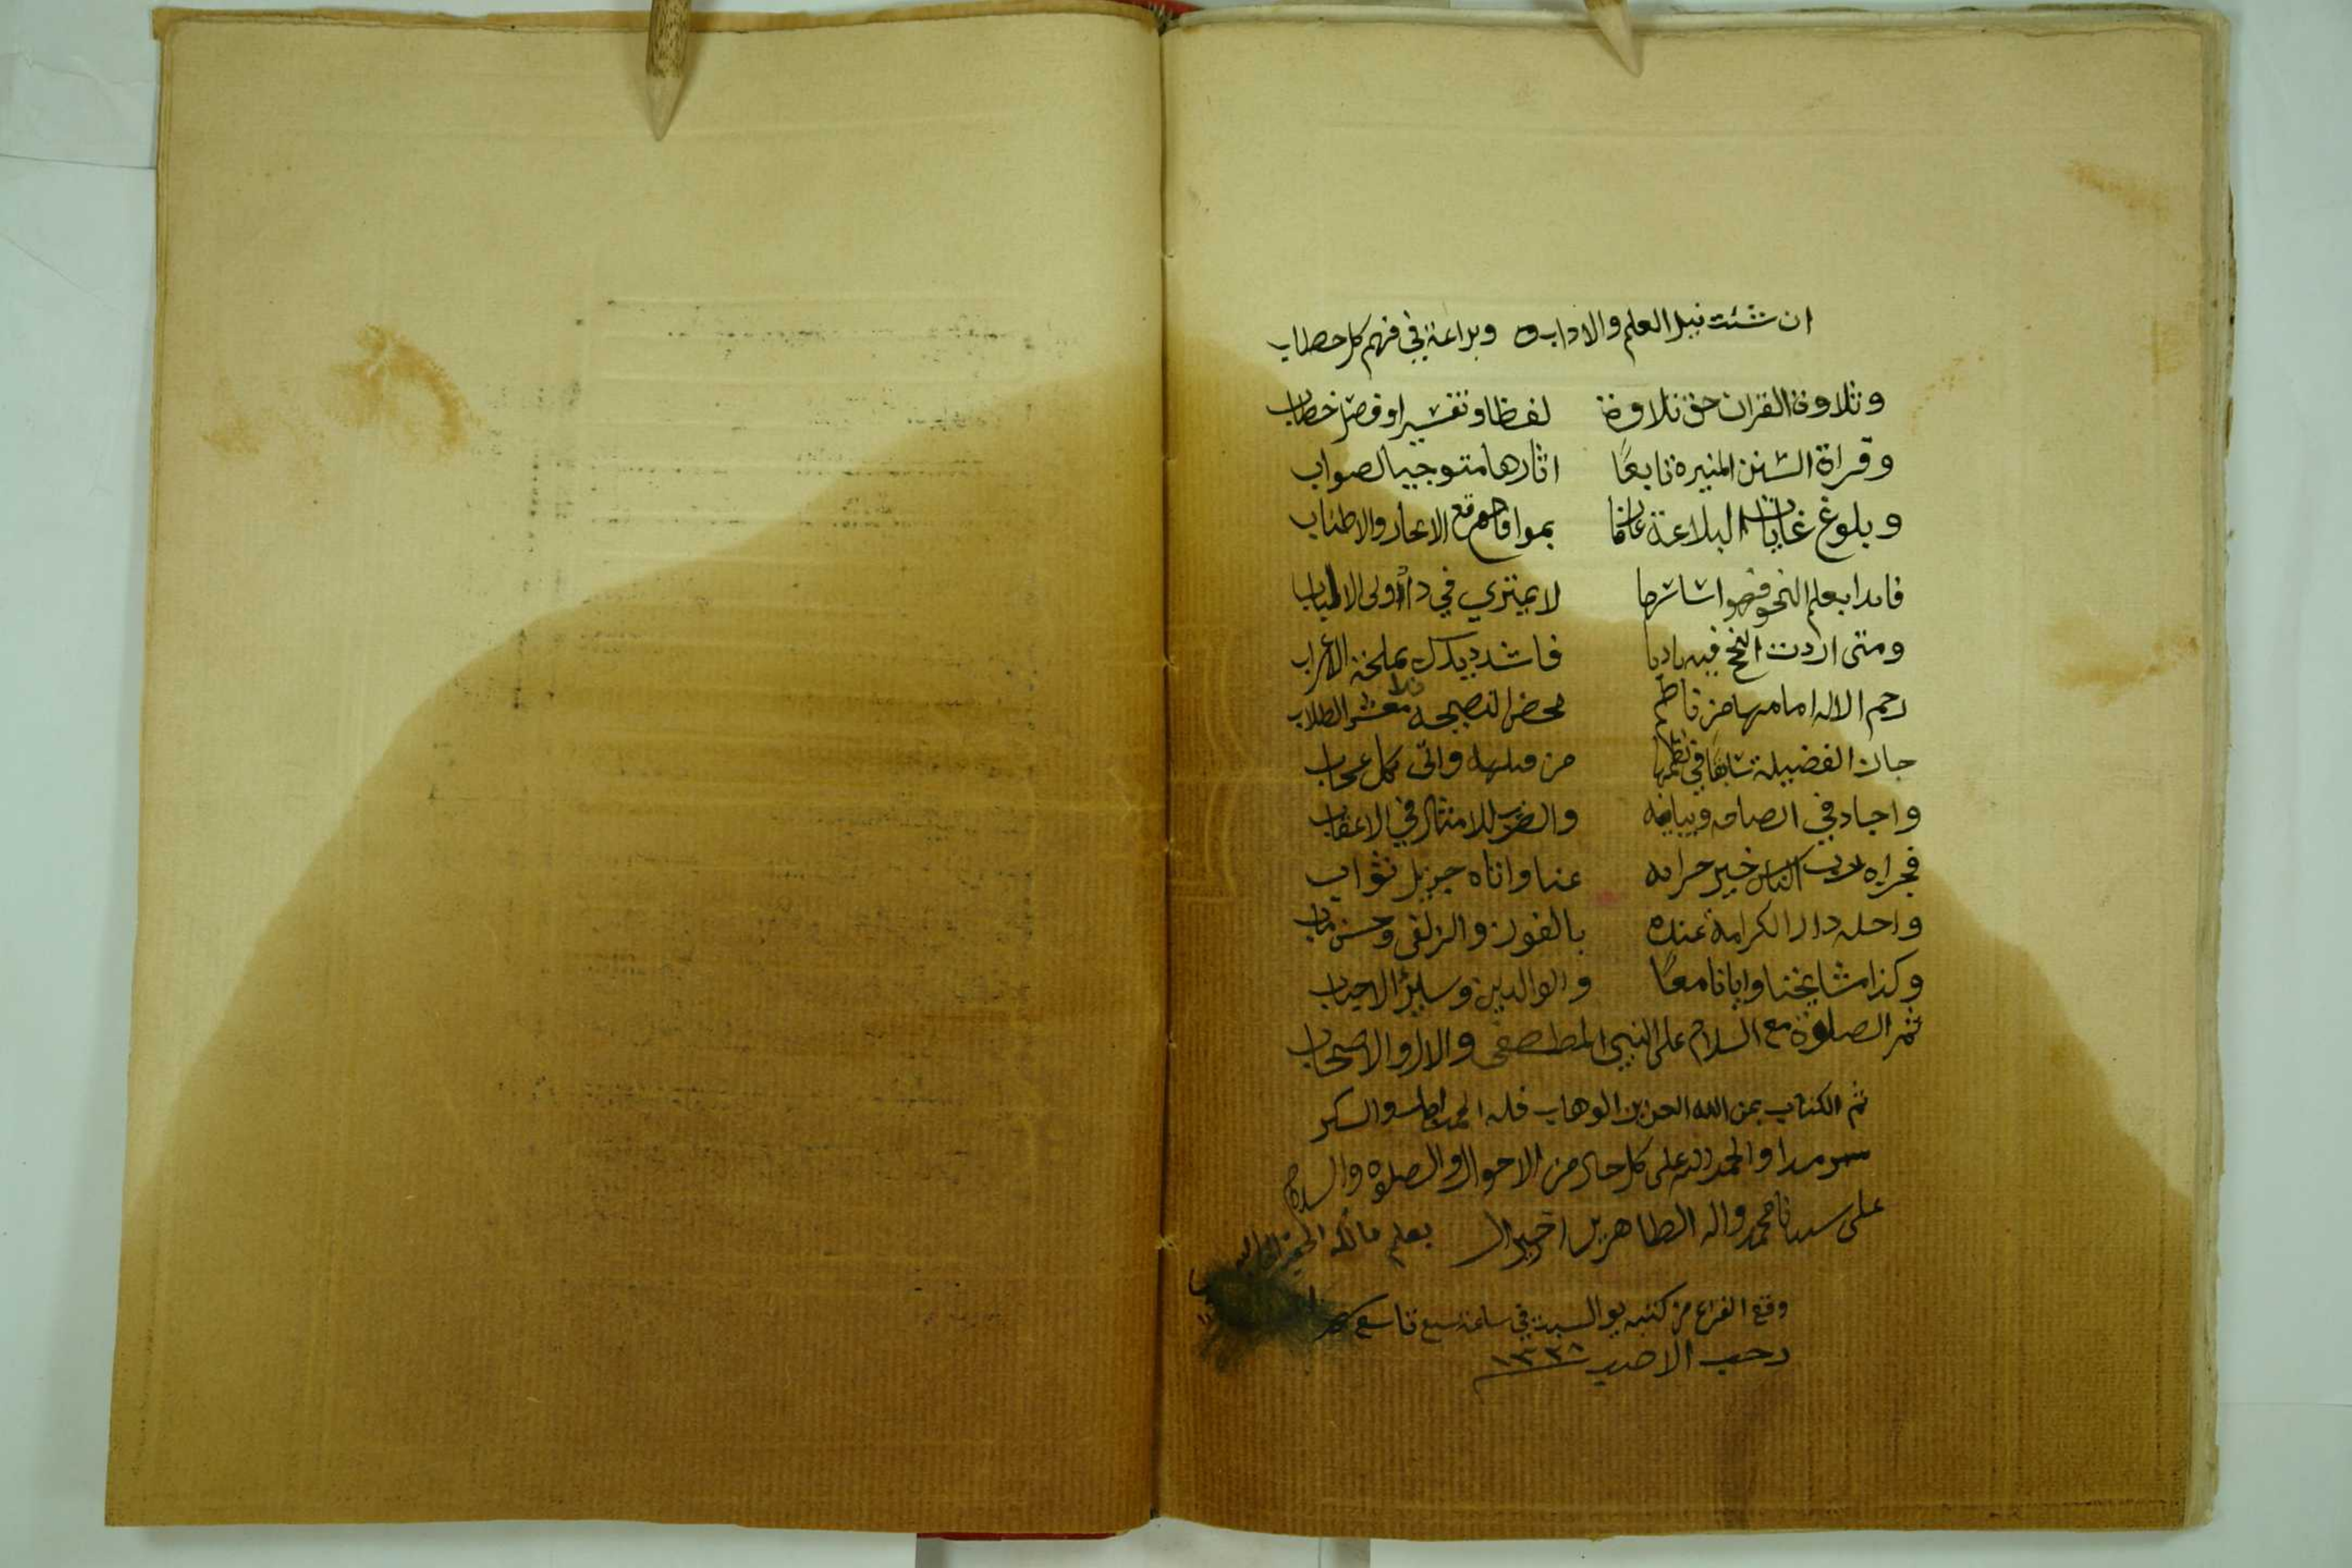 ان شئت نيل العلم والاداب وبراعة في فهم كل خطاب
وتلاوة القران حق تلاوة لفظا وتفسيرا وفصل خطاب
وقراة السنن المنيرة تابعًا اثارها متوجبا لصواب
وبلوغ غايات البلاغة عارفا بمواقع الايجاز والاطناب
فابدا بعلم النحو فهو اساسها لا يمتري في ذا اولى الالباب
ومتى اردت النحو فيه باديا فاشدد يديك بملحة الاعراب
رحم الاله امامها من ناظم محض النصيحة معشر الطلاب
حاز الفضيلة سابقا في نظمها من قبله واتى بكل عجاب
واجاد في ايضاحه وبيانه والضرب للامثال في الاعقاب
فجزاه رب الناس خير جزايه عنا واتاه جزيل ثواب
واحله دار الكرامة عنده بالفوز والزلفى وحسن ماب
وكذا مشايخنا وابانا معًا والوالدين وساير الاحباب
ثم الصلوة مع السلام على النبي المصطفى والال والاصحاب
تم الكتاب بمن الله العزيز الوهاب فله الحمد والشكر
سرمدا والحمد لله على كل حال من الاحوال والصلوه والسلام
على سيدنا محمد واله الطاهرين خير ال بقلم مالكه الحقير
وقع الفراغ من كتبه يوم السبت في ساعة سبع تاسع شهر
رجب الاصب ١٣٣٨